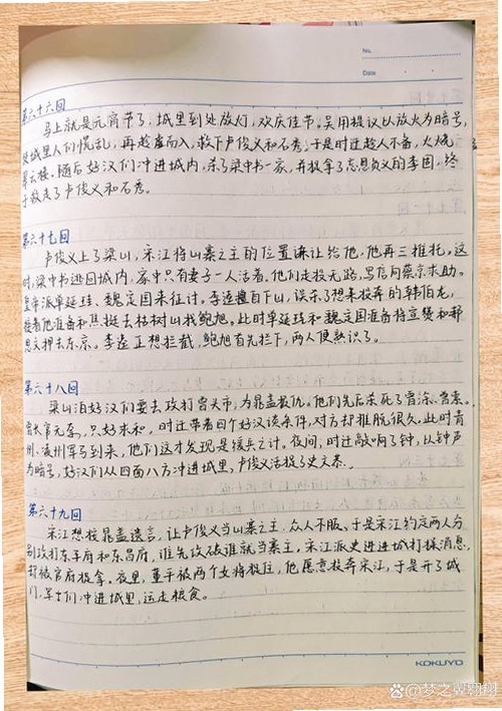 No.
Date
第六十六回
马上就是元宵节了，城里到处放灯，欢庆佳节。吴用提议以放火为暗号，
使城里人们慌乱，再趁虚而入，救下卢俊义和石秀，于是时迁趁人不备，火烧
翠云楼。随后好汉们冲进城内，杀了梁中书一家，并捉拿了忘恩负义的李固，终
于救走了卢俊义和石秀。
第六十七回
卢俊义上了梁山，宋江将山寨之主的位置谦让给他，他再三推托。这
时，梁中书逃回城内，家中只有妻子一人活着，他们走投无路，写信向蔡京求助。
皇帝派单廷珪、魏定国来征讨。李逵擅自下山，误杀了想来投奔的韩伯龙，
接着他准备和焦挺去枯树山找鲍旭。此时单廷珪和魏定国准备将宣赞和郝
思文押去东京。李逵正想拦截，鲍旭首先拦下，两人便熟识了。
第六十八回
梁山泊好汉们要去攻打曾头市，为晁盖报仇。他们先后杀死了曾涂、曾索。
曾长官无奈，只好求和，时迁带着四个好汉谈条件，对方却推脱很久。此时青
州、凌州军马到来，他们这才发现是缓兵之计。夜间，时迁敲响了钟，以钟声
为暗号，好汉们从四面八方冲进城里，卢俊义活捉了史文恭。
第六十九回
宋江想按晁盖遗言，让卢俊义当山寨之主，众人不服。于是宋江约定两人分
别攻打东平府和东昌府，谁先攻破谁就当寨主，宋江派史进进城打探消息，
却被官府捉拿。夜里，董平被两个女将捉住，他愿意投奔宋江，于是开了城
门，军士们冲进城里，运走粮食。
KOKUYO
@梦之翼翱翔